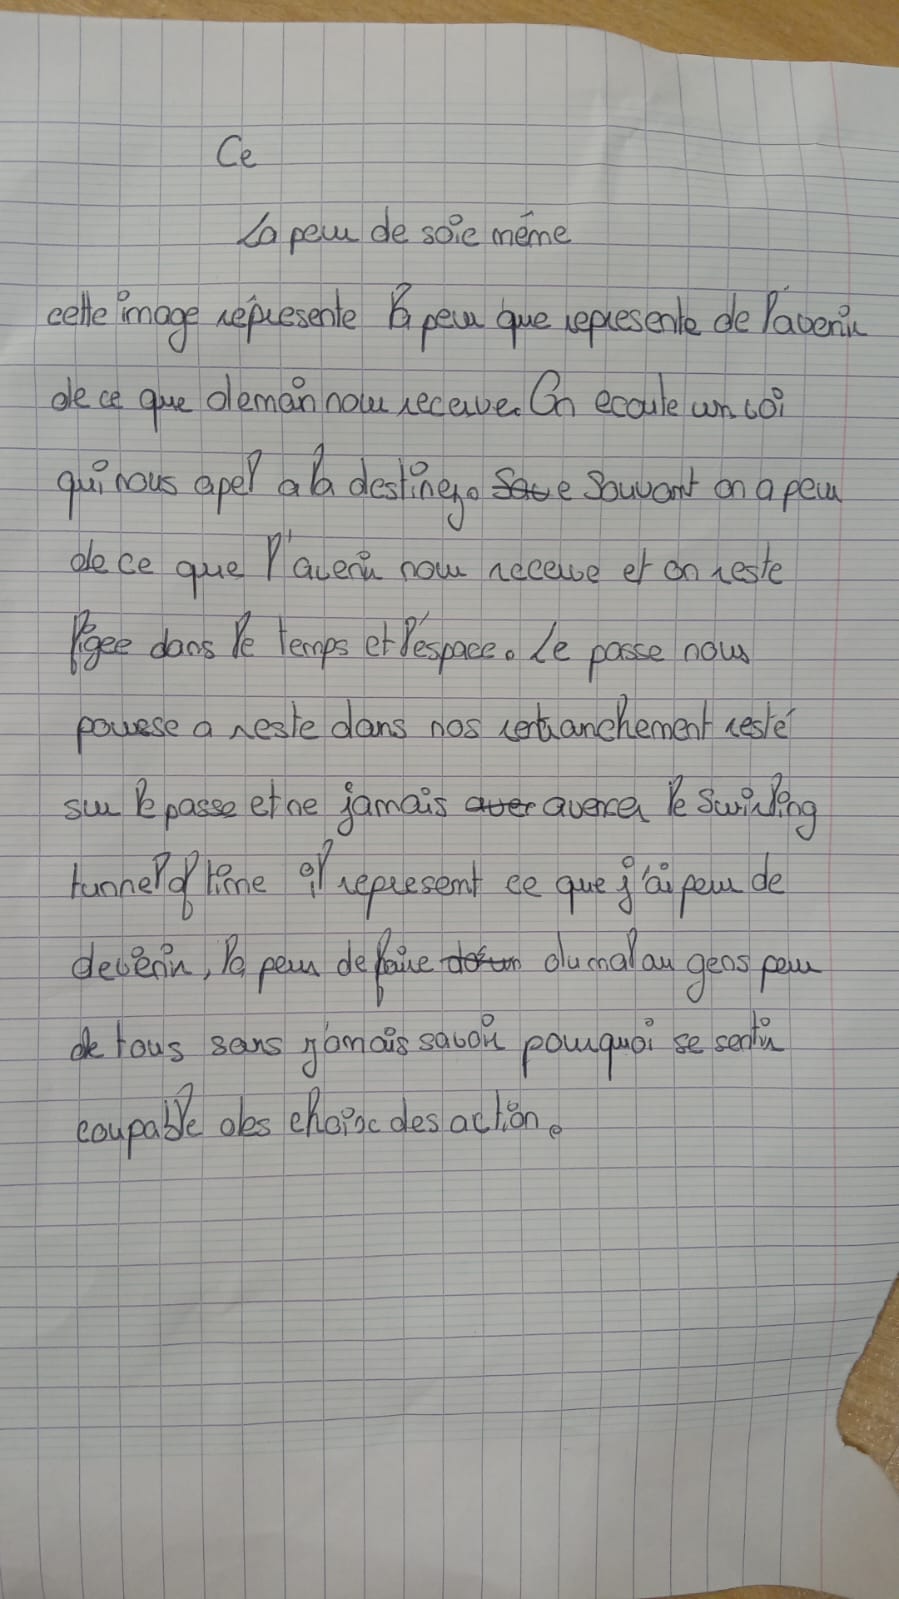 Ce
La peur de soie même
cette image réprésente la peur que represente de l'avenir
de ce que demain nour receuve. On ecoute un soi
qui nous apel a la destiney. Save Souvant on a peur
de ce que l'avenir nour receuve et on reste
figee dans le temps et l'éspace. Le passe nous
pousse a reste dans nos retranchement resté
sur le passe et ne jamais aver avencer le swirling
tunnel of time il represent ce que j'ai peur de
devenir, la peur de faire du mal au gens peur
de tous sans jamais savoir pourquoi se sentir
coupable des choix des action.